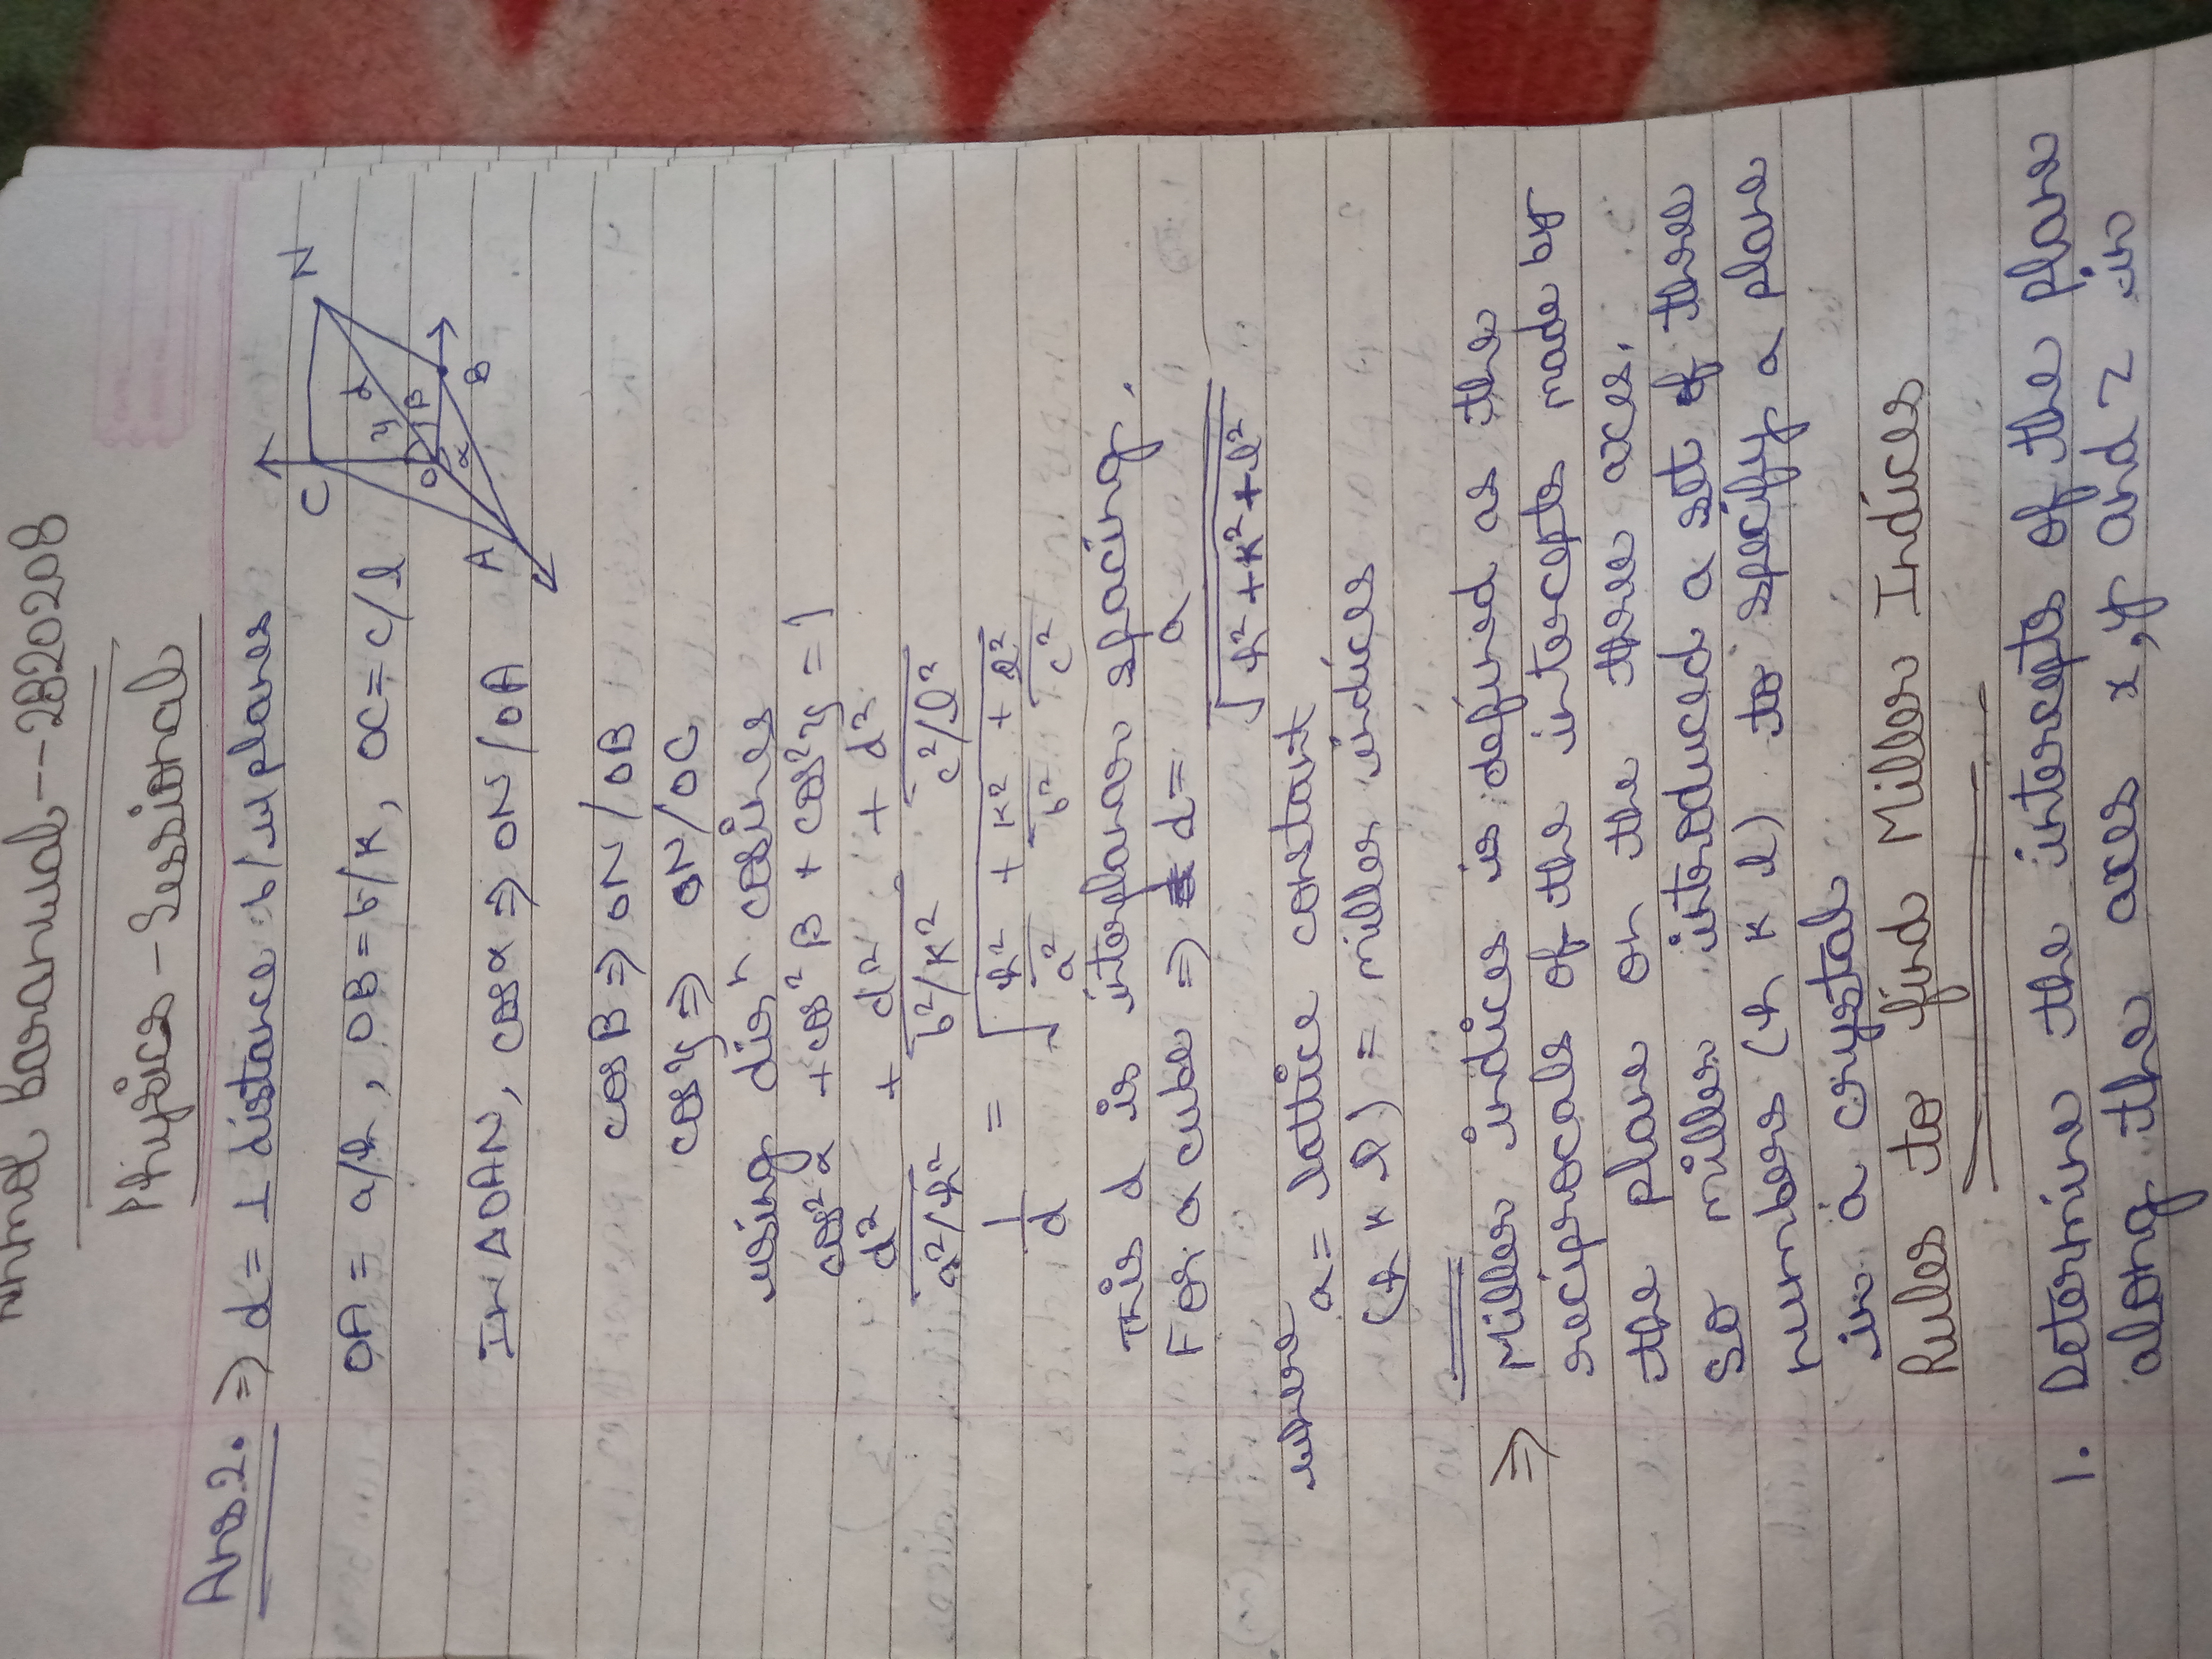 Baranwal--2820208
Physics - Sessional
Ans2. ⇒ d = ⊥ distance b/w planes
OA = a/h, OB = b/K, OC = c/l
C N
γ d
O β
α
A B
In ΔOAN, cosα ⇒ ON/OA
cosβ ⇒ ON/OB
cosγ ⇒ ON/OC
using disⁿ cosines
cos²α + cos²β + cos²γ = 1
d²/(a²/h²) + d²/(b²/K²) + d²/(c²/l²)
1/d = √(h²/a² + K²/b² + l²/c²)
This d is interplanar spacing.
For a cube ⇒ d = a/√(h²+K²+l²)
where
a = lattice constant
(h K l) = miller indices
⇒ Miller indices is defined as the
reciprocals of the intercepts made by
the plane on the three axes.
So miller introduced a set of three
numbers (h K l) to specify a plane
in a crystal
Rules to find Miller Indices
1. Determine the intercepts of the plane
along the axes x, y and z in